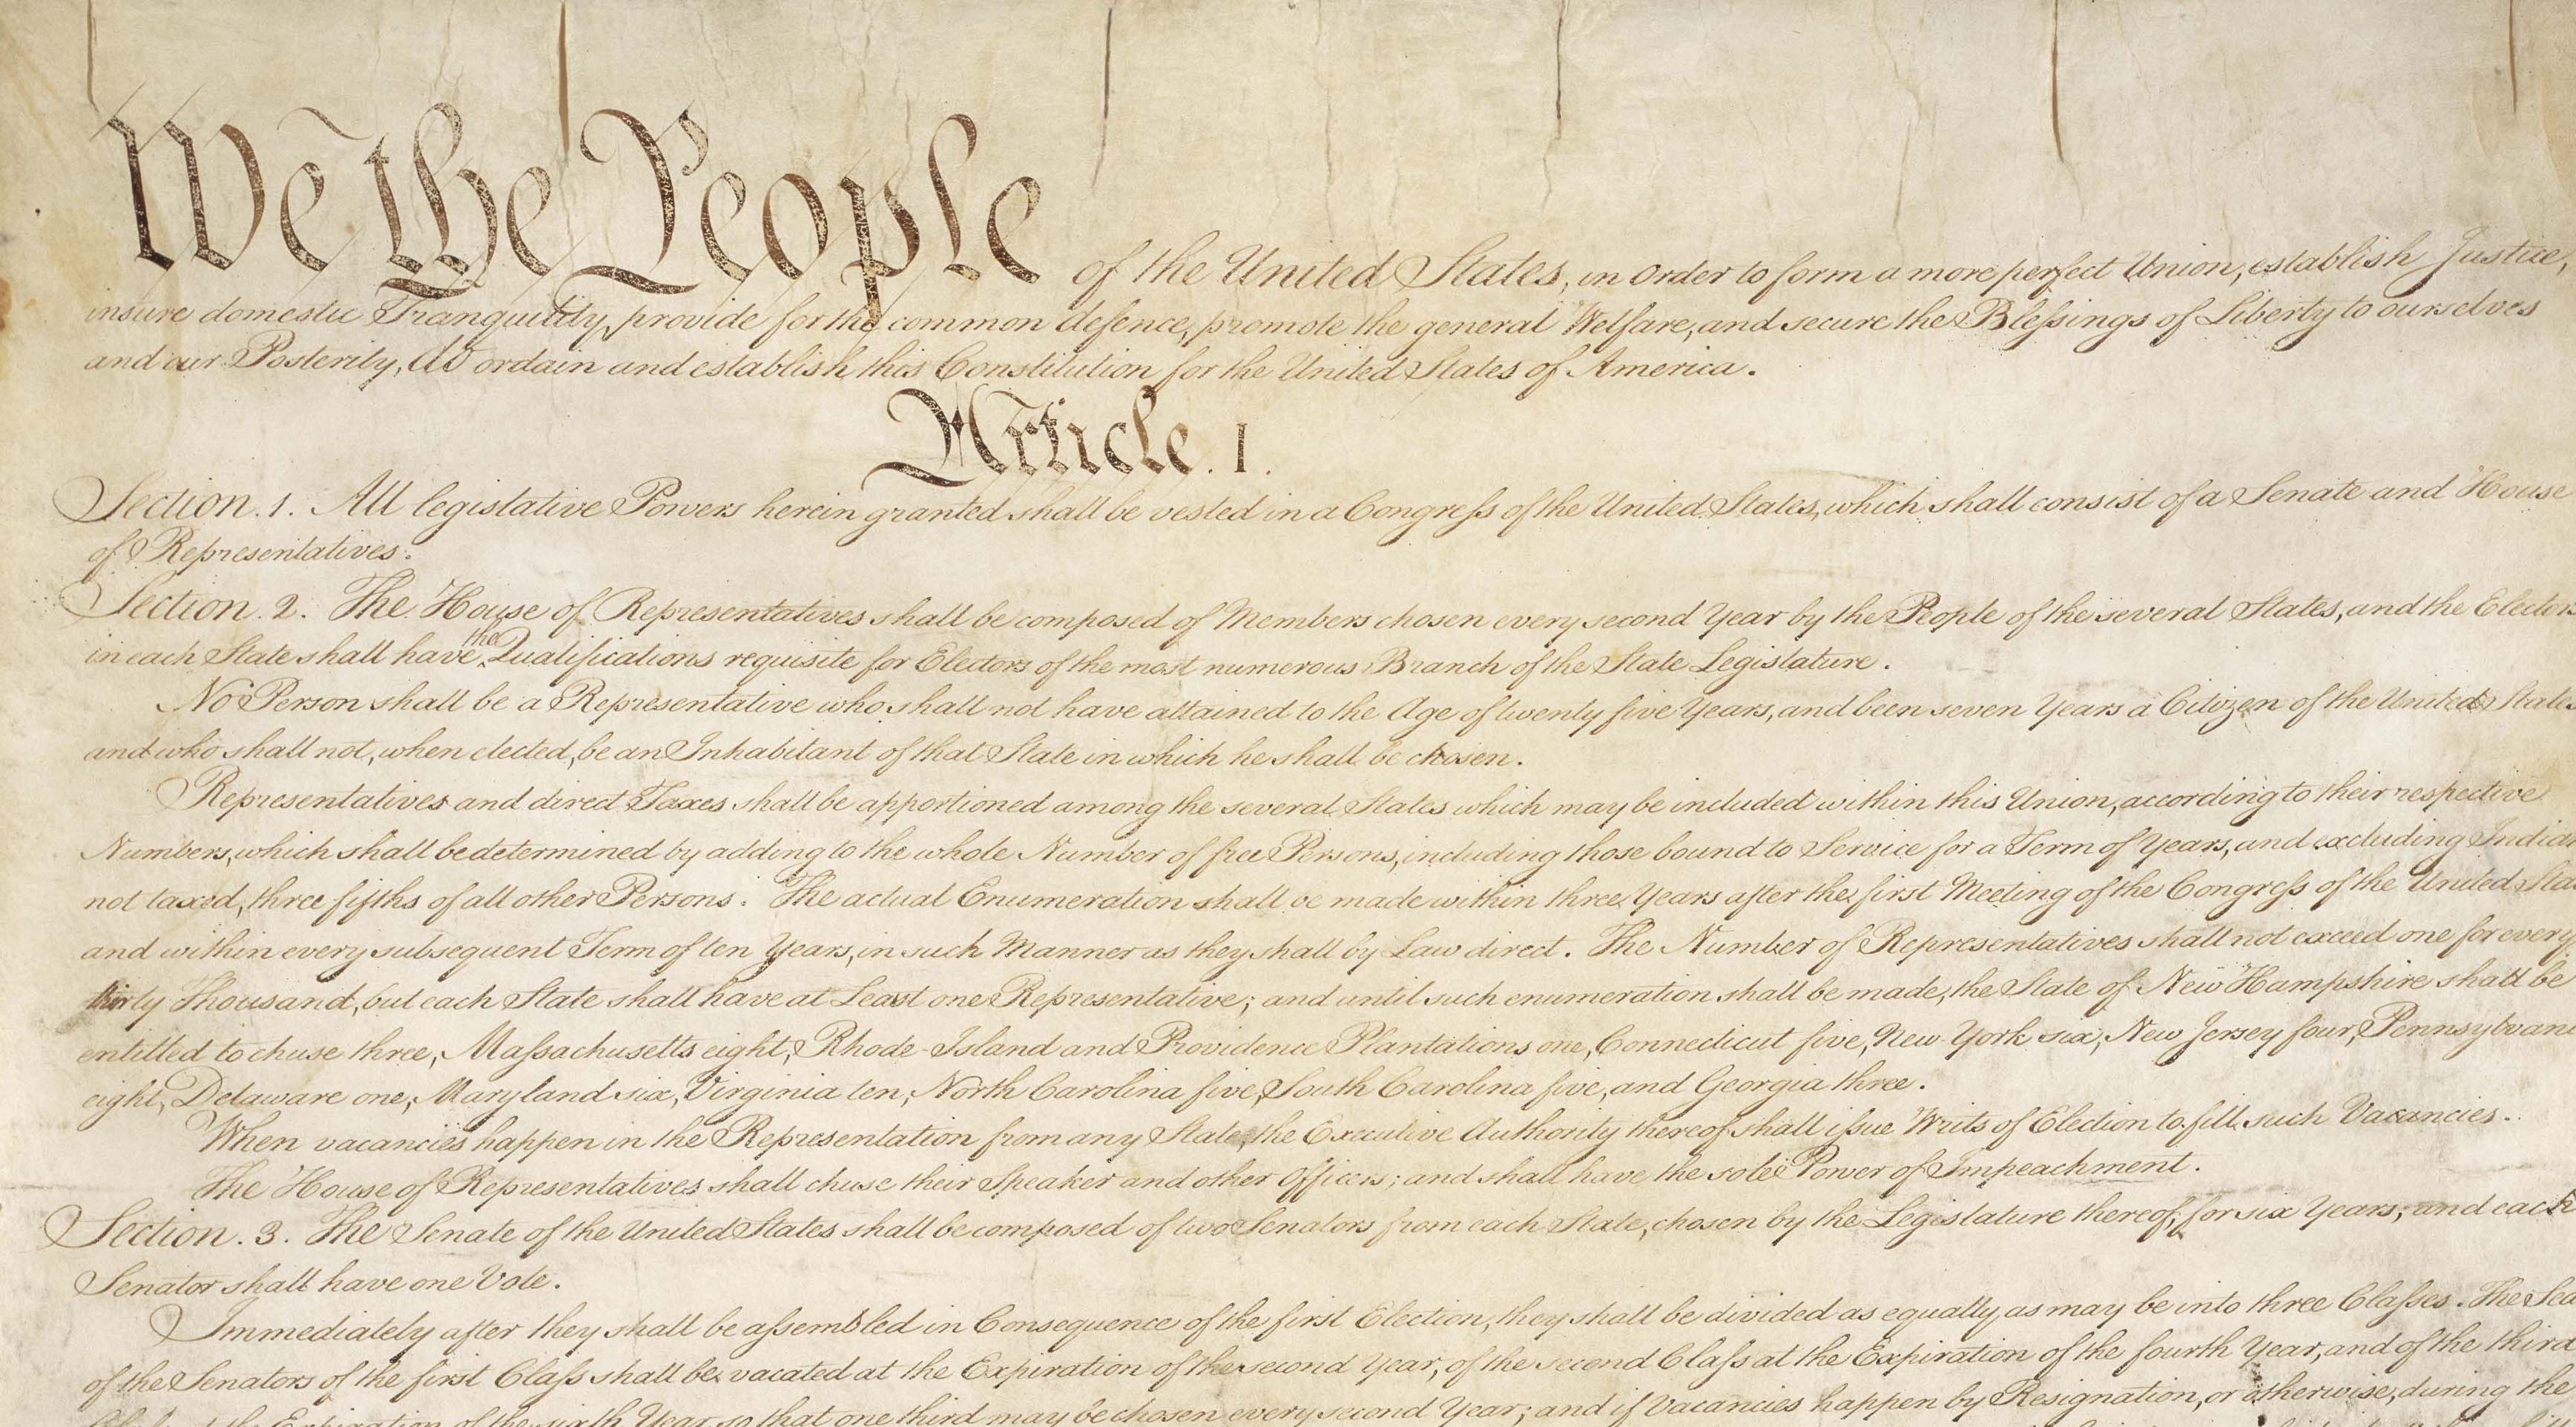 We the People of the United States, in Order to form a more perfect Union, establish Justice,
insure domestic Tranquility, provide for the common defence, promote the general Welfare, and secure the Blessings of Liberty to ourselves
and our Posterity, do ordain and establish this Constitution for the United States of America.
Article. I.
Section. 1. All legislative Powers herein granted shall be vested in a Congress of the United States, which shall consist of a Senate and House
of Representatives.
Section. 2. The House of Representatives shall be composed of Members chosen every second Year by the People of the several States, and the Electors
in each State shall have the Qualifications requisite for Electors of the most numerous Branch of the State Legislature.
No Person shall be a Representative who shall not have attained to the Age of twenty five Years, and been seven Years a Citizen of the United States
and who shall not, when elected, be an Inhabitant of that State in which he shall be chosen.
Representatives and direct Taxes shall be apportioned among the several States which may be included within this Union, according to their respective
Numbers, which shall be determined by adding to the whole Number of free Persons, including those bound to Service for a Term of Years, and excluding Indian
not taxed, three fifths of all other Persons. The actual Enumeration shall be made within three Years after the first Meeting of the Congress of the United Sta
and within every subsequent Term of ten Years, in such Manner as they shall by Law direct. The Number of Representatives shall not exceed one for every
thirty Thousand, but each State shall have at Least one Representative; and until such enumeration shall be made, the State of New Hampshire shall be
entitled to chuse three, Massachusetts eight, Rhode-Island and Providence Plantations one, Connecticut five, New-York six, New Jersey four, Pennsylvan
eight, Delaware one, Maryland six, Virginia ten, North Carolina five, South Carolina five, and Georgia three.
When vacancies happen in the Representation from any State, the Executive Authority thereof shall issue Writs of Election to fill such Vacancies.
The House of Representatives shall chuse their Speaker and other Officers; and shall have the sole Power of Impeachment.
Section. 3. The Senate of the United States shall be composed of two Senators from each State, chosen by the Legislature thereof, for six Years; and each
Senator shall have one Vote.
Immediately after they shall be assembled in Consequence of the first Election, they shall be divided as equally as may be into three Classes. The Sea
of the Senators of the first Class shall be vacated at the Expiration of the second Year, of the second Class at the Expiration of the fourth Year, and of the third
Class at the Expiration of the sixth Year, so that one third may be chosen every second Year; and if Vacancies happen by Resignation, or otherwise, during the